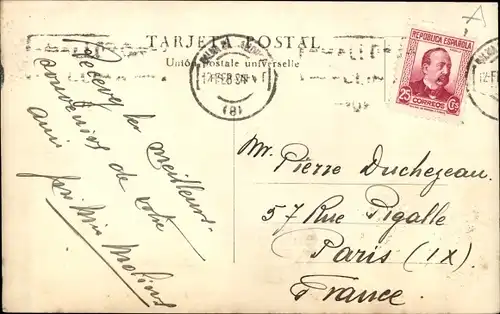 TARJETA POSTAL
Unión postale universelle
REPUBLICA ESPAÑOLA
25 CORREOS Cts
(8)
Recevez les meilleurs
souvenirs de votre
ami
Mr. Pierre Duchezeau.
57 Rue Pigalle
Paris (IX).
France.